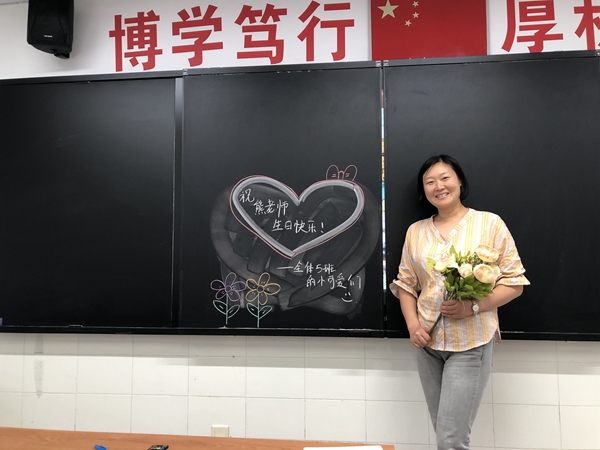 博学笃行
厚
祝
熊老师
生日快乐！
——全体5班
的小可爱们